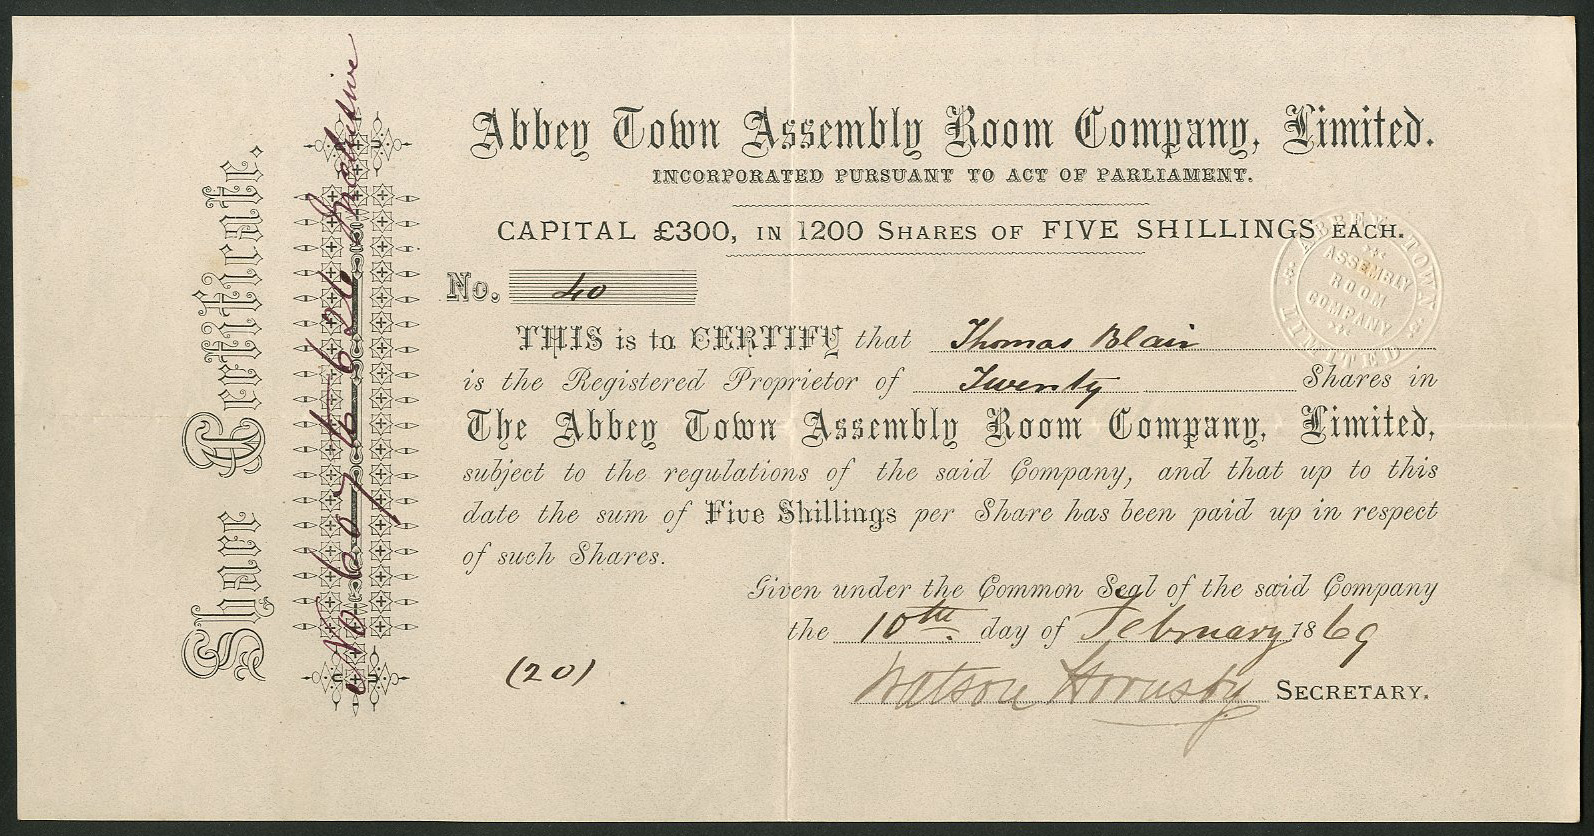 Share Certificate.
No 607 to 626 Inclusive
Abbey Town Assembly Room Company, Limited.
INCORPORATED PURSUANT TO ACT OF PARLIAMENT.
CAPITAL £300, IN 1200 SHARES OF FIVE SHILLINGS EACH.
ABBEY TOWN
ASSEMBLY
ROOM
COMPANY
LIMITED
No. 40
THIS is to CERTIFY that Thomas Blair
is the Registered Proprietor of Twenty Shares in
The Abbey Town Assembly Room Company, Limited,
subject to the regulations of the said Company, and that up to this
date the sum of Five Shillings per Share has been paid up in respect
of such Shares.
Given under the Common Seal of the said Company
the 10th day of February 1869
(20)
Watson Hornsby SECRETARY.